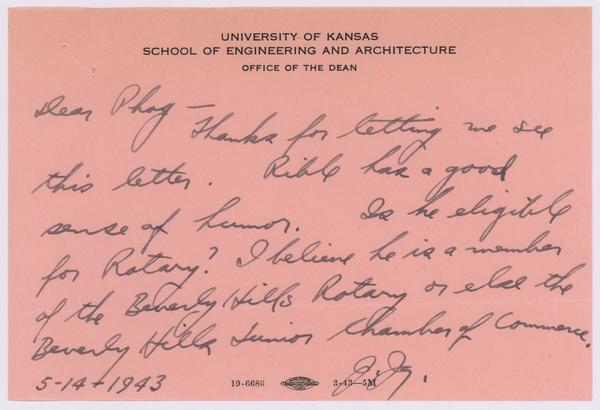 UNIVERSITY OF KANSAS
SCHOOL OF ENGINEERING AND ARCHITECTURE
OFFICE OF THE DEAN
Dear Phog —
Thanks for letting me see
this letter. Rible has a good
sense of humor. Is he eligible
for Rotary? I believe he is a member
of the Beverly Hills Rotary or else the
Beverly Hills Junior Chamber of Commerce.
5-14-1943
19-6686 3-43—5M